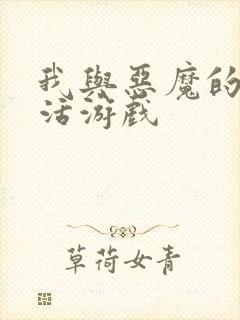 我與惡魔的
活游戲
草荷女青